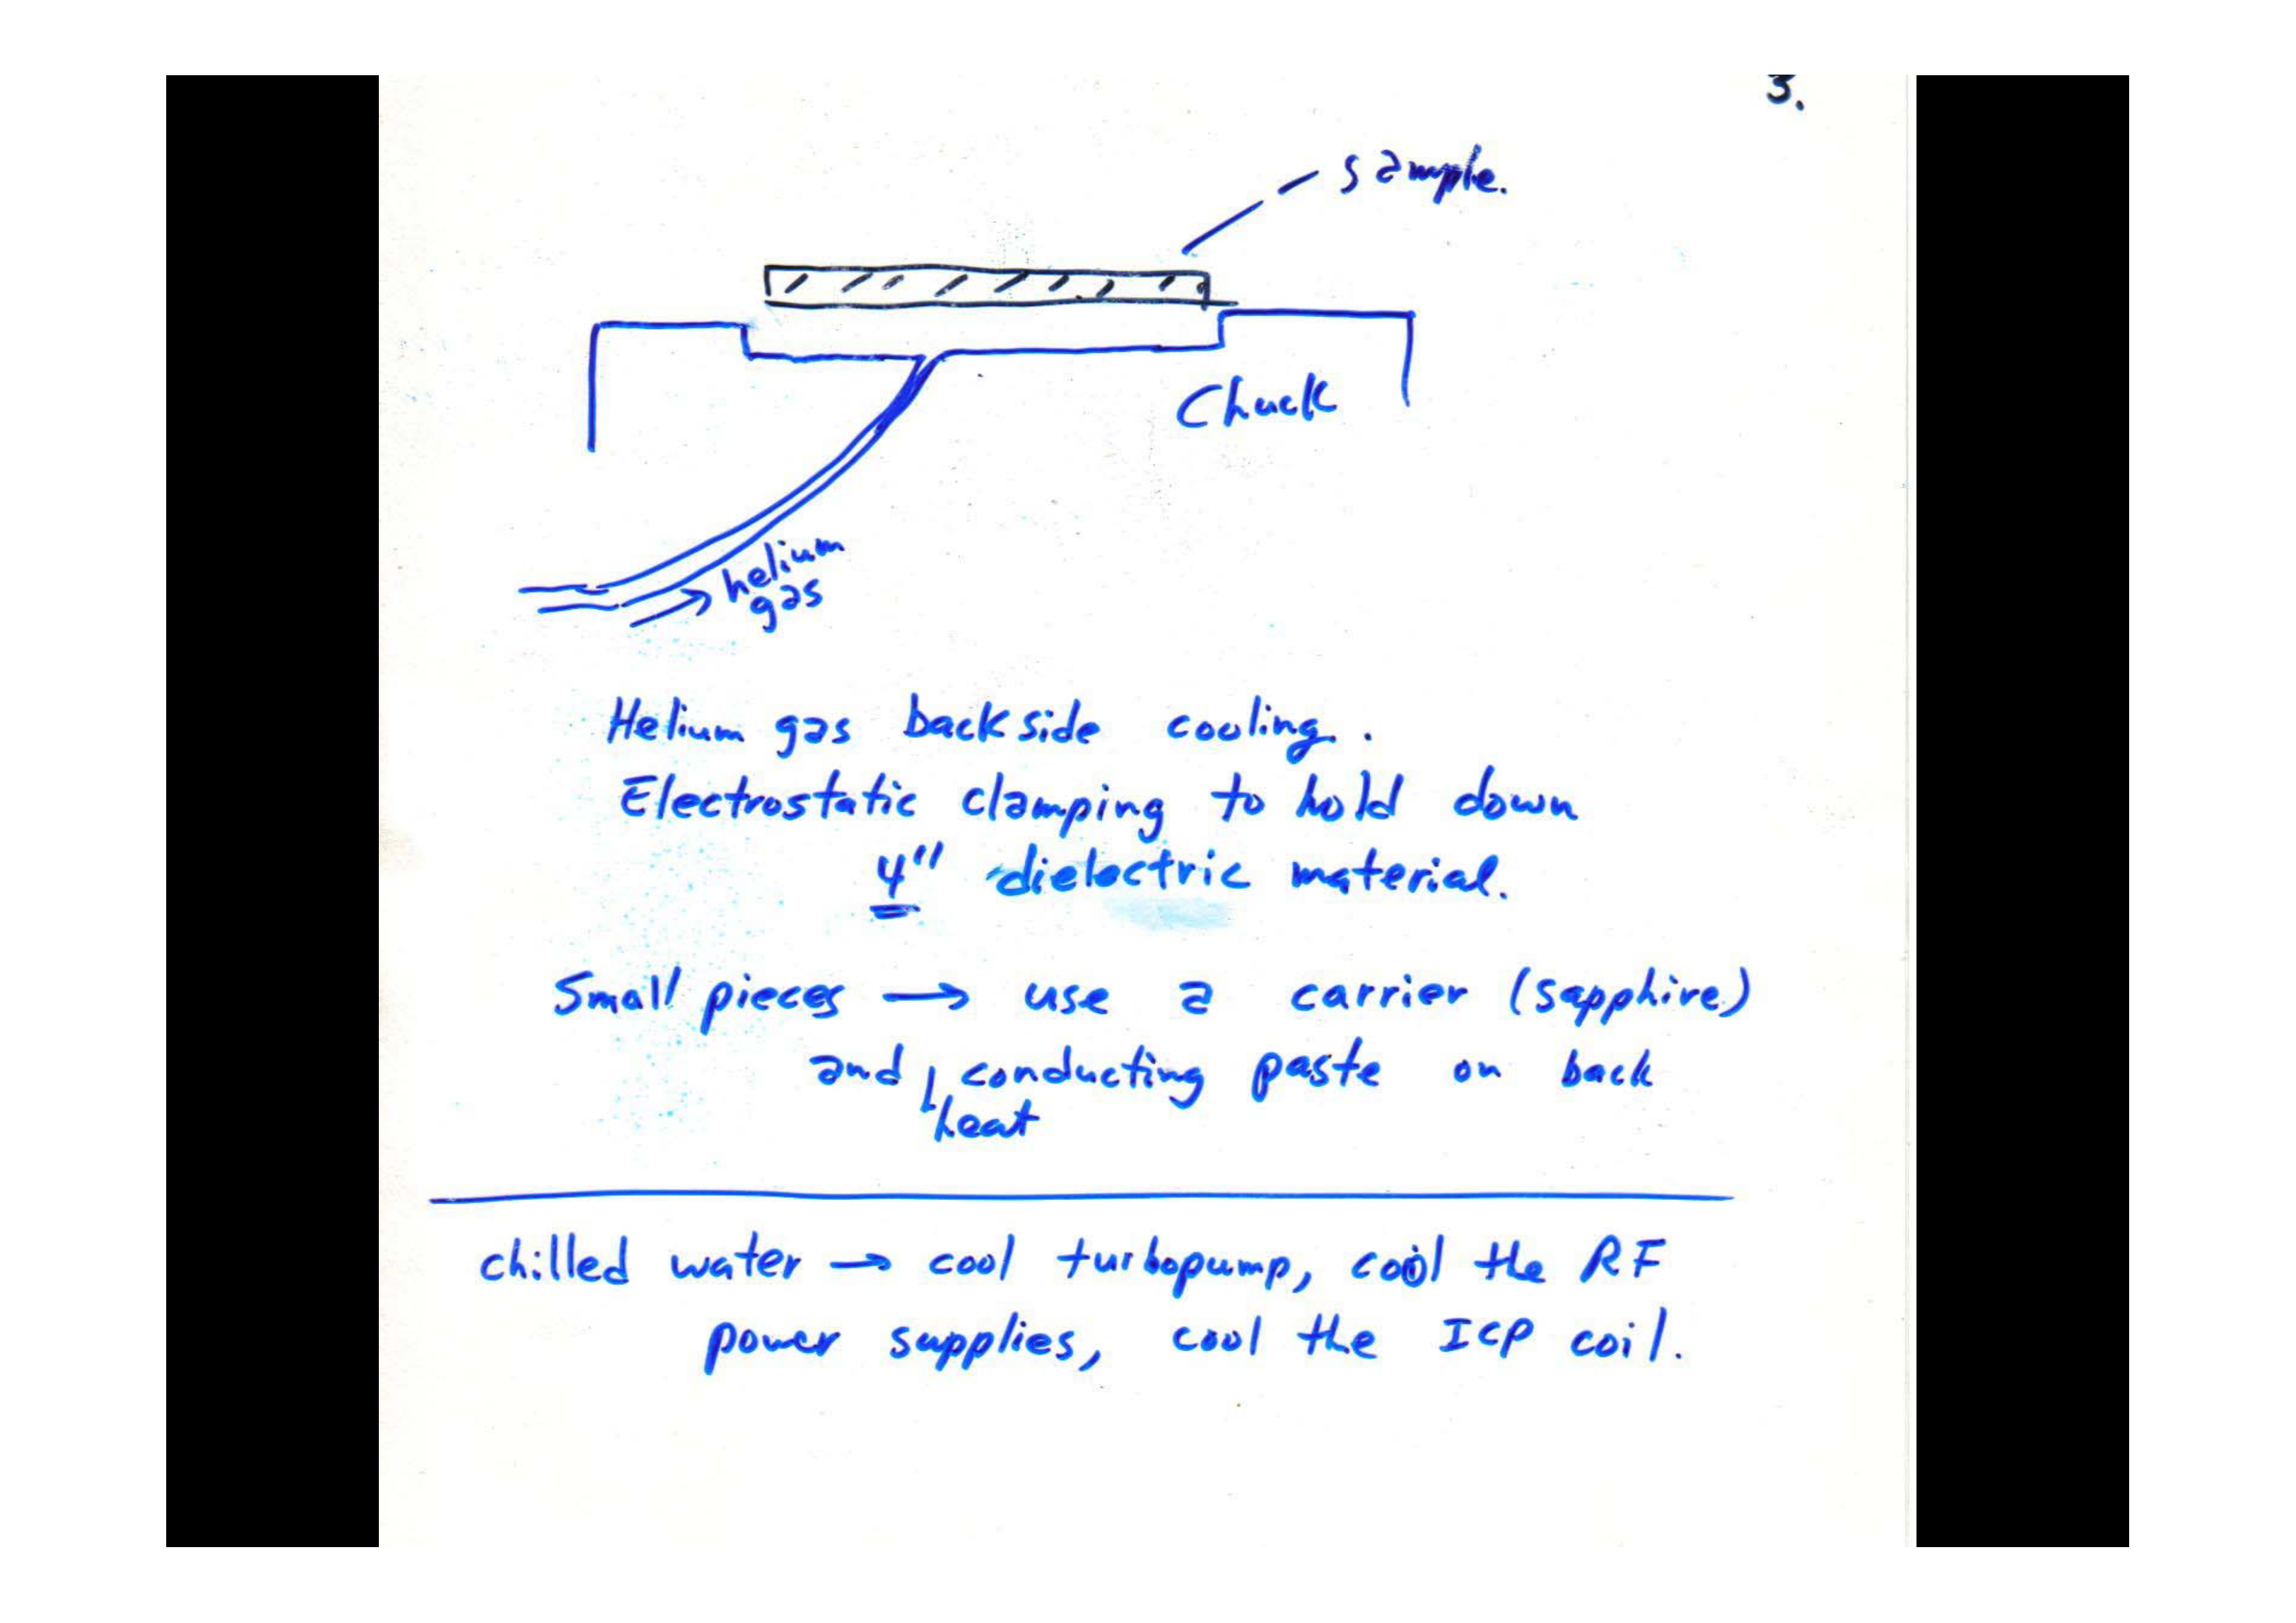 3.
sample.
Chuck
helium
gas
Helium gas backside cooling.
Electrostatic clamping to hold down
4" dielectric material.
Small pieces → use a carrier (sapphire)
and conducting paste on back
heat
chilled water → cool turbopump, cool the RF
power supplies, cool the ICP coil.